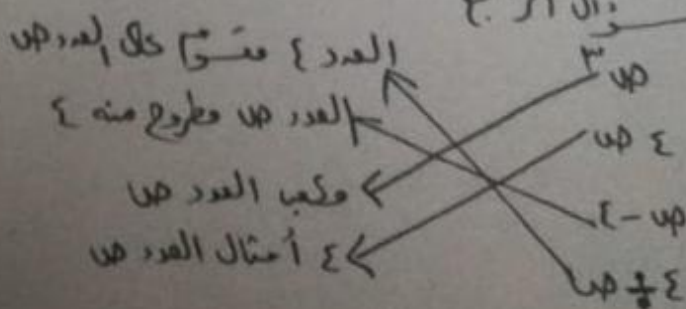 ص٣
٤ ص
ص - ٤
٤ ÷ ص
العدد ٤ مقسوم على العدد ص
العدد ص مطروح منه ٤
مكعب العدد ص
٤ أمثال العدد ص